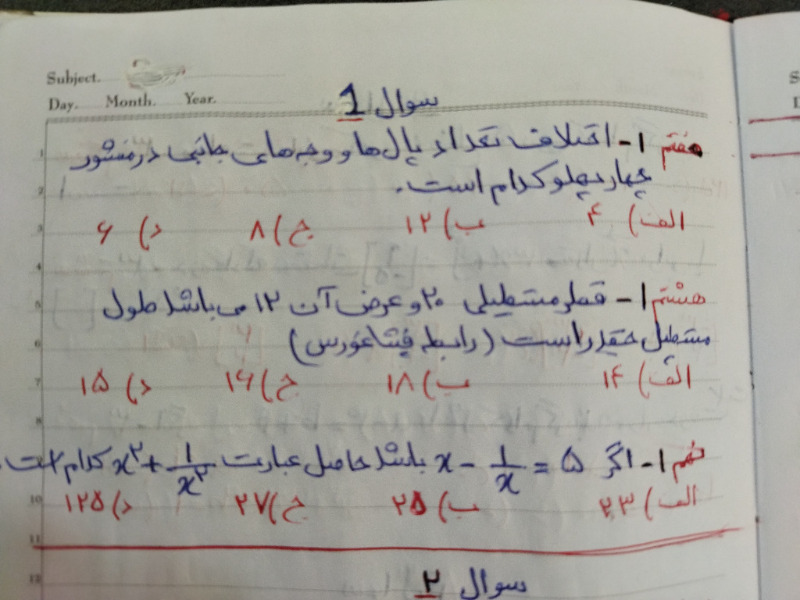 Subject.
Day. Month. Year.
سوال 1
هفتم 1- اختلاف تعداد یال ها و وجه های جانبی در منشور
چهار پهلو کدام است.
الف) ۴ ب) ۱۲ ج) ۸ د) ۶
هشتم 1- قطر مستطیلی ۲۰ و عرض آن ۱۲ می باشد طول
مستطیل چقدر است (رابطه فیثاغورس)
الف) ۱۴ ب) ۱۸ ج) ۱۶ د) ۱۵
نهم 1- اگر x - 1/x = ۵ باشد حاصل عبارت x² + 1/x² کدام است
الف) ۲۳ ب) ۲۵ ج) ۲۷ د) ۱۲۵
سوال ۲